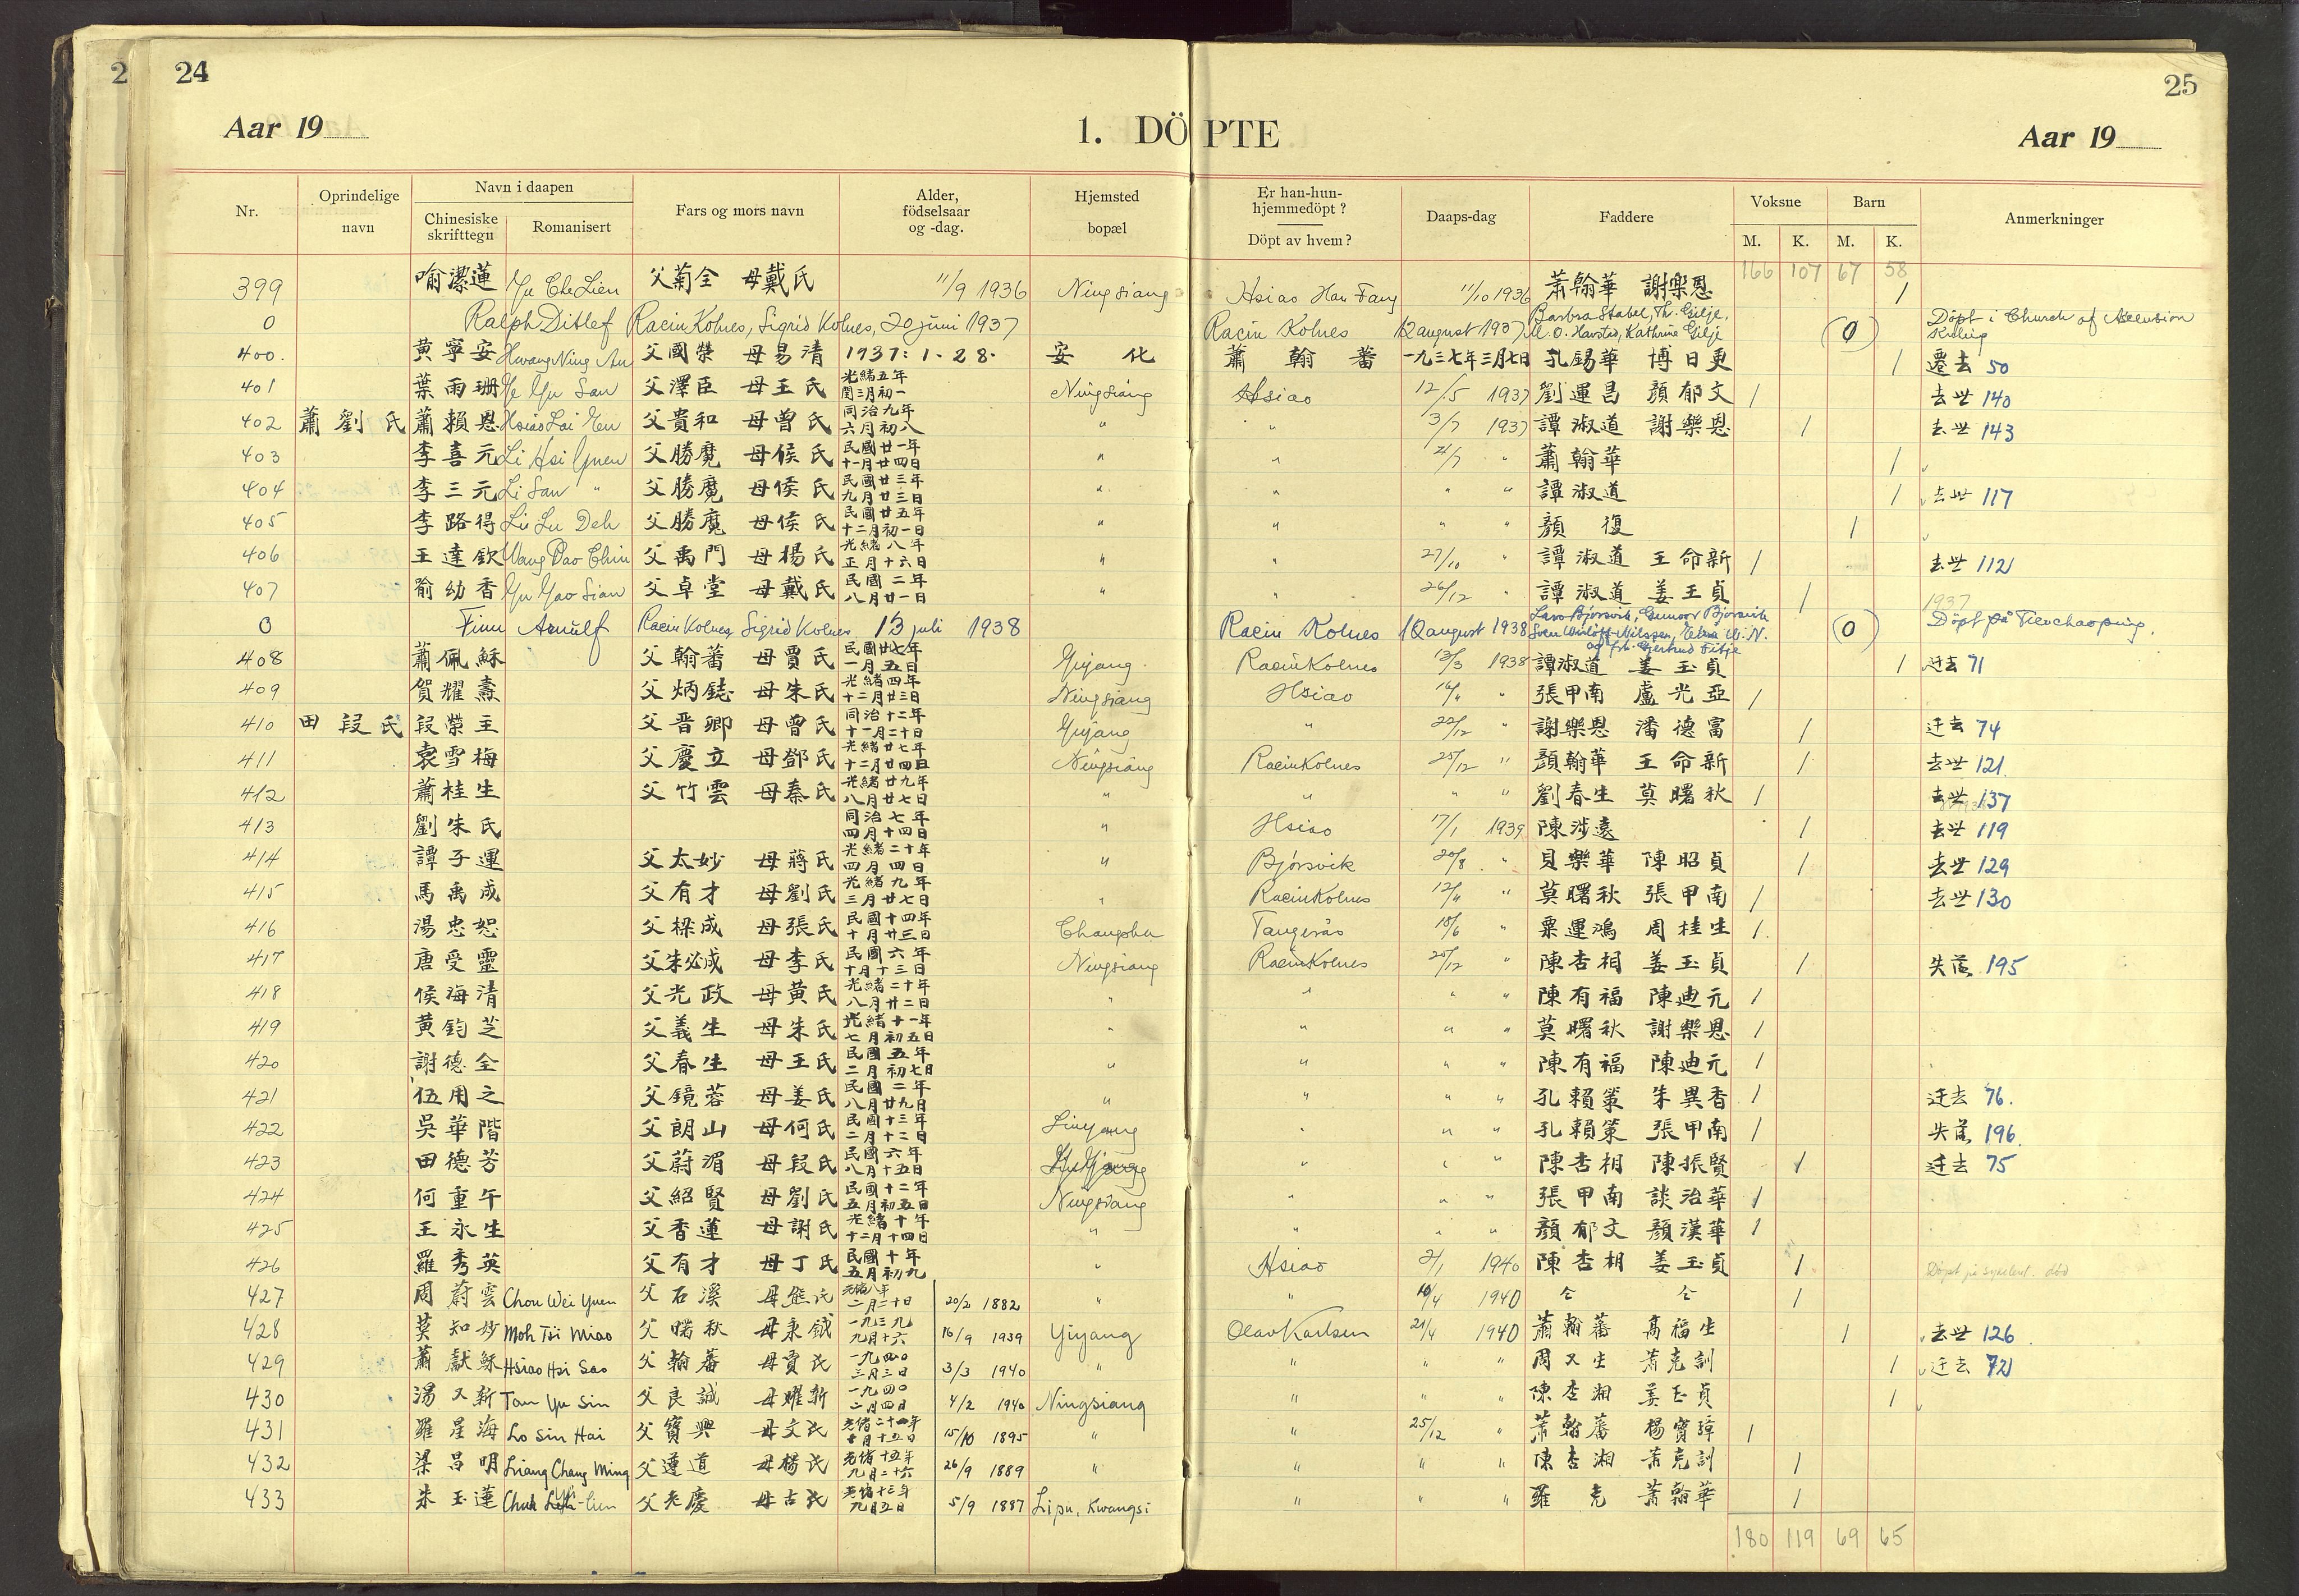 2 24
25
Aar 19
1. DÖPTE
Aar 19
Nr. Oprindelige navn Navn i daapen Chinesiske skrifttegn Romanisert Fars og mors navn Alder, födselsaar og -dag. Hjemsted bopæl Er han-hun- hjemmedöpt ? Döpt av hvem ? Daaps-dag Faddere Voksne M. K. Barn M. K. Anmerkninger
166 107 67 58
399 喻潔蓮 Yu Che Lien 父菊全 母戴氏 11/9 1936 Ningsiang Hsiao Han Fang 11/10 1936 蕭翰華 謝樂恩 1
0 Ralph Ditlef Racin Kolnes, Sigrid Kolnes, 20 juni 1937 Racin Kolnes 12 august 1937 Barbra Stabel, Th. Gilje, M. O. Harstad, Kathrine Gilje (0) Döpt i Church of Ascension Kuling
400. 黃寧安 Hwang Ning An 父國榮 母易清 1937: 1. 28. 安化 蕭翰蕃 一九三七年三月七日 孔錫華 博日更 1 遷去 50
401 葉雨珊 Ye Yu San 父澤臣 母王氏 光緒五年閏三月初一 Ningsiang Hsiao 12/5 1937 劉運昌 顏郁文 1 去世 140
402 蕭劉氏 蕭賴恩 Hsiao Lai Gen 父貴和 母曾氏 同治九年六月初八 " " 3/7 1937 譚淑道 謝樂恩 1 去世 143
403 李喜元 Li Hsi Yuen 父勝魔 母侯氏 民國廿一年十一月廿四日 " " 21/7 " 蕭翰華 1
404 李三元 Li San " 父勝魔 母侯氏 民國廿三年九月廿三日 " " " " 譚淑道 1 去世 117
405 李路得 Li Lu Deh 父勝魔 母侯氏 民國廿五年十二月初一日 " " " " 顏復 1
406 王達欽 Wang Dao Chin 父禹門 母楊氏 光緒八年正月十六日 " " 27/10 " 譚淑道 王命新 1 去世 112
407 喻幼香 Yu Yao Sian 父卓堂 母戴氏 民國二年八月廿一日 " " 26/12 " 譚淑道 姜玉貞 1 1937
0 Finn Arnulf Racin Kolnes, Sigrid Kolnes 13 juli 1938 Racin Kolnes 12 august 1938 Lars Bjørsvik, Gunvor Bjørsvik og frk. Gjertrud Fitje (0) Döpt på Tienchaoping.
408 蕭佩穌 父翰蕃 母賈氏 民國廿七年一月五日 Yiyang Racin Kolnes 13/3 1938 譚淑道 姜玉貞 1 迁去 71
409 賀耀燾 父炳鋕 母朱氏 光緒四年十二月廿三日 Ningsiang Hsiao 16/4 " 張甲南 盧光亞 1
410 田段氏 段榮主 父晋卿 母曾氏 同治十二年十一月二十日 Yiyang " 22/12 " 謝樂恩 潘德富 1 迁去 74
411 袁雪梅 父慶立 母鄧氏 光緒廿七年十二月廿四日 Ningsiang Racin Kolnes 25/12 " 顏翰華 王命新 1 去世 121.
412 蕭桂生 父竹雲 母秦氏 光緒廿九年八月廿七日 " " " " 劉春生 莫曙秋 1 去世 137
413 劉朱氏 同治七年四月十四日 " Hsiao 17/1 1939 陳涉遠 1 去世 119
414 譚子運 父太妙 母蔣氏 光緒二十年四月四日 " Bjørsvik 20/8 " 貝樂華 陳昭貞 1 去世 129
415 馬禹成 父有才 母劉氏 光緒九年三月廿七日 " Racin Kolnes 12/4 " 莫曙秋 張甲南 1 去世 130
416 湯忠恕 父樑成 母張氏 民國十四年十月廿三日 Changsha Tangerås 18/6 " 粟運鴻 周桂生 1
417 唐受靈 父朱必成 母李氏 民國六年十月十三日 Ningsiang Racin Kolnes 25/12 " 陳杏相 姜玉貞 1 失落 195
418 侯海清 父光政 母黃氏 光緒二十年八月廿二日 " " " " 陳有福 陳迪元 1
419 黃鈞芝 父義生 母朱氏 光緒十一年七月初五日 " " " " 莫曙秋 謝樂恩 1
420 謝德全 父春生 母王氏 民國五年二月初七日 " " " " 陳有福 陳迪元 1
421 伍用之 父鏡蓉 母姜氏 民國二年八月廿九日 " " " " 孔賴策 朱異香 1 迁去 76.
422 吳華階 父朗山 母何氏 民國十三年二月十二日 Liuyang " " " 孔賴策 張甲南 1 失落 196.
423 田德芳 父蔚湄 母段氏 民國六年八月十五日 " " " 陳杏相 陳振賢 1 迁去 75
424 何重午 父紹賢 母劉氏 民國十二年五月初五日 Ningsiang " " " 張甲南 談治華 1
425 王永生 父香蓮 母謝氏 光緒十年十二月十四日 " " " " 顏郁文 顏漢華 1
426 羅秀英 父有才 母丁氏 民國十年五月初九 " Hsiao 2/1 1940 陳杏相 姜玉貞 1 Döpt på sykeleiet. död
427 周蔚雲 Chou Wei Yuen 父石溪 母熊氏 光緒八年二月二十日 20/2 1882 " " 10/4 1940 仝 仝 1
428 莫知妙 Moh Tsi Miao 父曙秋 母秉鉞 一九三九九月十六 16/9 1939 Yiyang Olav Karlsen 21/4 1940 蕭翰蕃 高福生 1 去世 126
429 蕭獻穌 Hsiao Hsi Soo 父翰蕃 母賈氏 一九四〇三月三日 3/3 1940 " " " " 周又生 蕭克訓 1 迁去 72
430 湯又新 Tan Yu Sin 父良誠 母耀新 一九四〇二月四日 4/2 1940 Ningsiang " " " 陳杏湘 姜玉貞 1
431 羅星海 Lo Sin Hai 父寶興 母文氏 光緒二十一年十月十五日 15/10 1895 " " 25/12 " 蕭翰蕃 楊寶璋 1
432 梁昌明 Liang Chang Ming 父蓮道 母楊氏 光緒十五年九月二十六 26/9 1889 " " " " 陳杏湘 蕭克訓 1
433 朱玉蓮 父光慶 母古氏 光緒十三年九月五日 5/9 1887 Lipu, Kwangsi " " " 羅克 蕭翰華 1
180 119 69 65